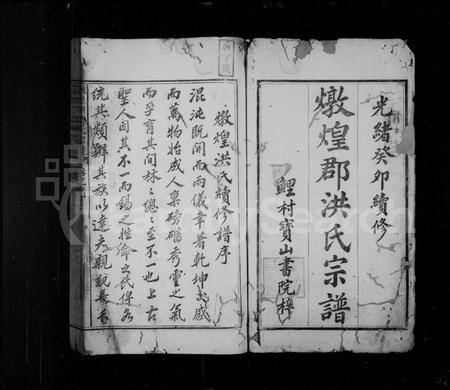 光緒癸卯續修
燉煌郡洪氏宗譜
鯉村寶山書院梓
燉煌洪氏續修譜序
混沌既開而兩儀肇著乾坤交感
而萬物始成人稟磅礴秀靈之氣
而孕育其間林之總之至不一也上古
聖人因其不一而錫之姓命之氏俾各
統其類辨其族以達夫親親長長